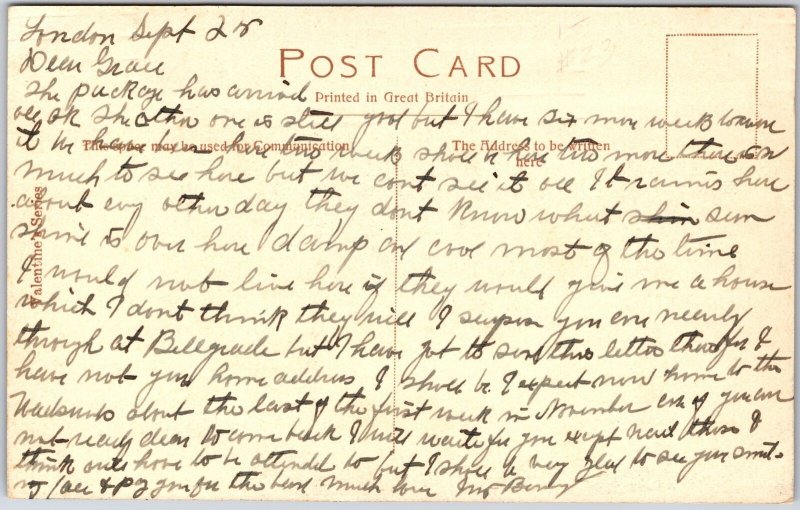 London Sept 28
Dear Grace
POST CARD
The package has arrived
Printed in Great Britain
all ok The other one is still good but I have six more weeks to
it We have been here two weeks shall be here two more there is so
This space may be used for Communication
The Address to be written here
much to see here but we cant see it all It rains here
about evry other day they dont know what sun
Valentine's Series
shine is over here damp and cool most of the time
I would not live here if they would give me a house
which I dont think they will I suppose you are nearly
through at Bellgrade but I have got to send this letter there for I
have not your home address I shall be I expect now home to the
about the last of the first week in November if you are
not ready dear to come back I will wait for you except need those I
think will have to be attended to but I shall be very glad to see your
face & pay you for the best much love Mrs Berry